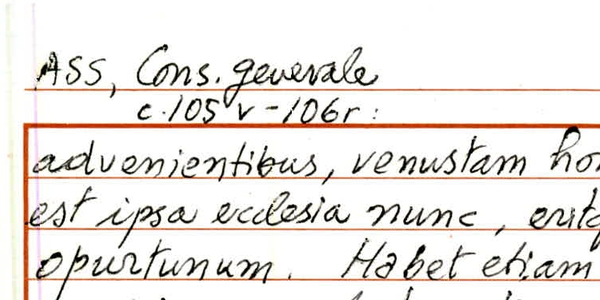 ASS, Cons. generale
c. 105 v - 106r :
advenientibus, venustam
est ipsa ecclesia nunc,
opurtunum. Habet etiam